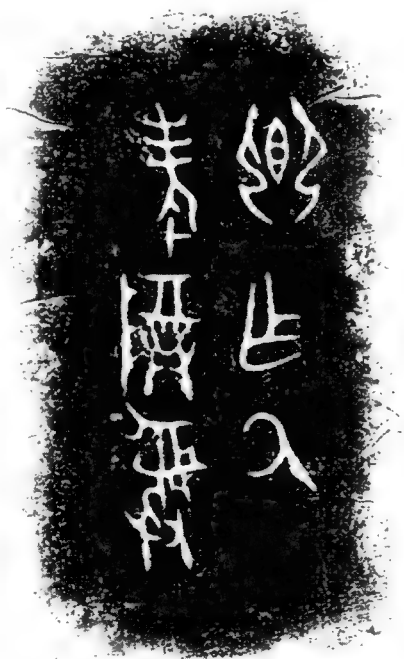 乍氒
考尊彝